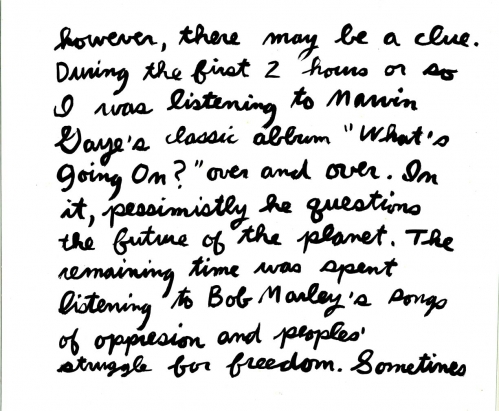 however, there may be a clue.
During the first 2 hours or so
I was listening to Marvin
Gaye's classic album "What's
going On?" over and over. In
it, pessimistly he questions
the future of the planet. The
remaining time was spent
listening to Bob Marley's songs
of oppresion and peoples'
struggle for freedom. Sometimes